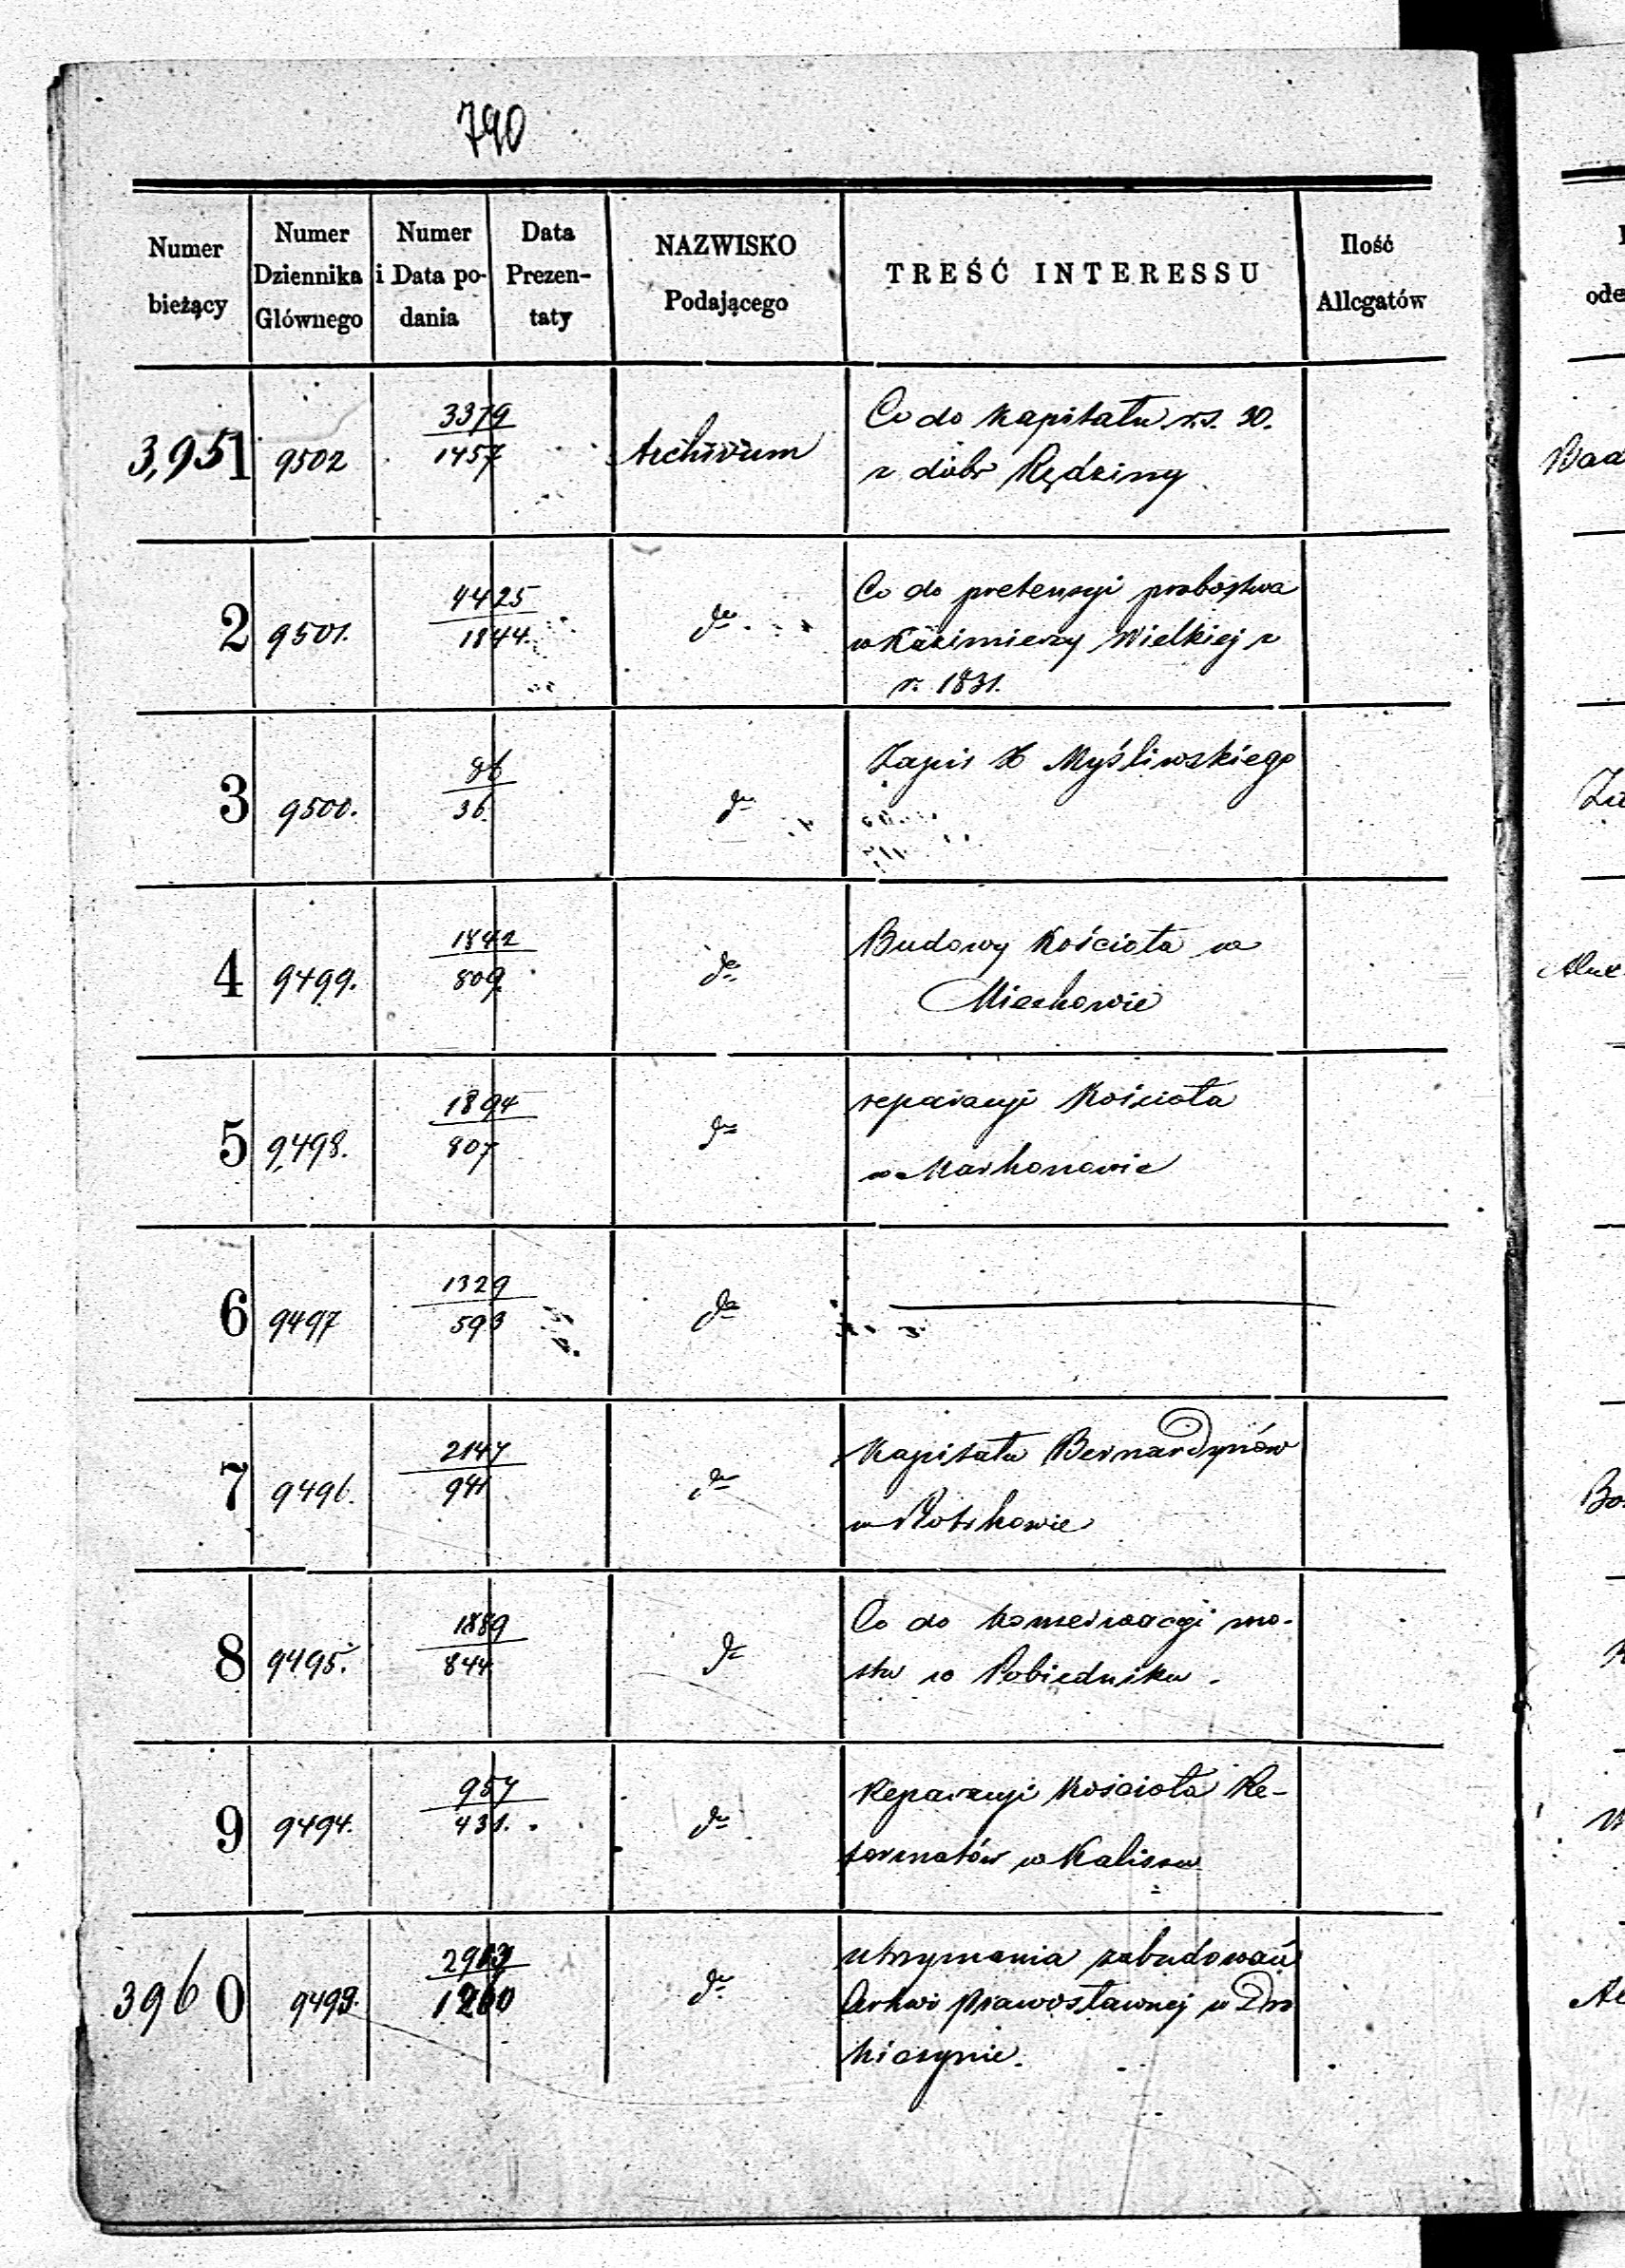 790
Numer bieżący | Numer Dziennika Głównego | Numer i Data podania | Data Prezentaty | NAZWISKO Podającego | TREŚĆ INTERESSU | Ilość Allegatów
3,951 9502 3379/1457 Archivum Co do kapitału rs. 30.
z dóbr Rędziny
2 9501. 4425/1844. do Co do pretensyi probostwa
w Kazimierzy Wielkiej z
r. 1831.
3 9500. 86/36 do Zapis X Myśliwskiego
4 9499. 1842/809 do Budowy Kościoła w
Miechowie
5 9498. 1894/807 do reparacyi Kościoła
w
6 9497 1329/593 do
7 9496. 2147/941 do Kapitału Bernardynów
w Piotrkowie
8 9495. 1889/844 do Co do konserwacyi mo-
stu w Pobiedniku.
9 9494. 957/431. do Reparacyi Kościoła Re-
formatów w Kaliszu
3960 9493. do utrzymania zabudowań
Cerkwi prawosławnej w Dro
hiczynie.